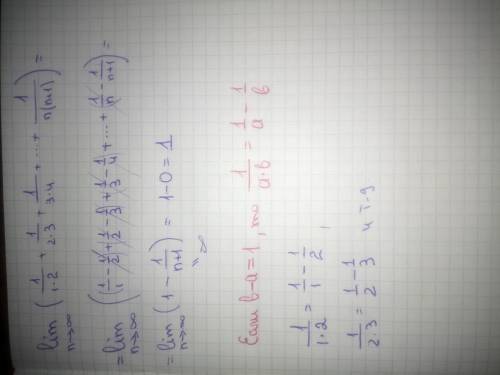 lim n→∞ (1/1·2 + 1/2·3 + 1/3·4 + ... + 1/n(n+1)) =
= lim n→∞ ((1/1 - 1/2) + 1/2 - 1/3) + 1/3 - 1/4 + ... + 1/n - 1/n+1) =
= lim n→∞ (1 - 1/n+1) = 1-0 = 1
∞
Если b-a=1, то 1/a·b = 1/a - 1/b
1/1·2 = 1/1 - 1/2,
1/2·3 = 1/2 - 1/3 и т.д